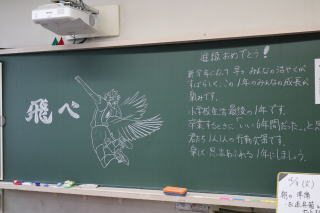 飛べ
進級おめでとう!
新学年になって早々みんなの活やくが
すばらしく、この1年のみんなの成長が
楽しみです。
小学校生活最後の1年です。
卒業するときに「いい6年間だった」と思
君たち1人1人の行動次第です。
楽しく思い出あふれる1年にしましょう。
朝の準備